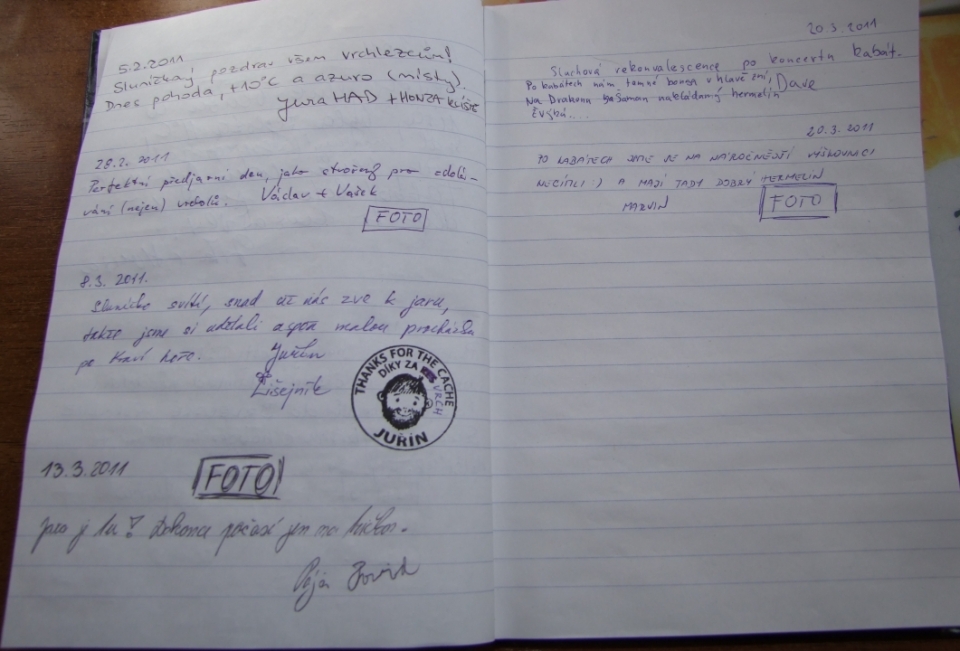 5.2.2011
Sluníčkový pozdrav všem vrchlezcům!
Dnes pohoda, +10°C a azuro (místy).
Jura MAD + HONZA KLIŠTĚ
28.2. 2011
Perfektní předjarní den, jako stvořený pro zdolá-
vání (nejen) vrcholů. Václav + Vašek
FOTO
8.3. 2011.
Sluníčko svítí, snad už nás zve k jaru,
takže jsme si udělali aspoň malou procházku
po Kraví hoře.
Juřín
&
Lišejník
THANKS FOR THE CACHE
DÍKY ZA
VRCH
JUŘÍN
13.3.2011
FOTO
Jaro je tu! počasí jen na
Pája
20.3.2011
Sluchová rekonvalescence po koncertu Kabát.
Po kabátech nám temně v hlavě zní, Dave
Na Drakona nakládaný hermelín
20.3.2011
PO KABÁTECH JSME SE NA NÁROČNĚJŠÍ VÝŠKOVNICI
NECÍTILI :) A MAJÍ TADY DOBRÝ HERMELÍN
MARVIN
FOTO